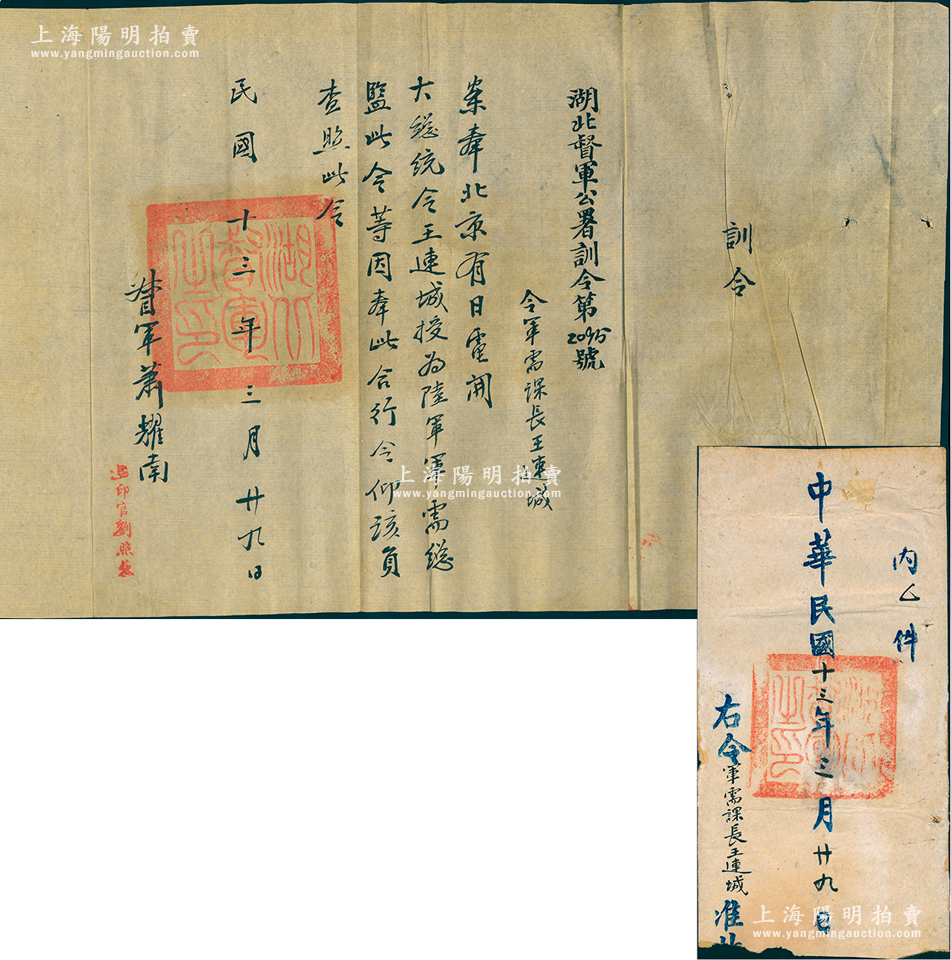 上海陽明拍賣
www.yangmingauction.com
訓令
湖北督軍公署訓令第2095號
令軍需課長王連城
案奉北京有日電開
大總統令王連城授為陸軍軍需總
監此令等因奉此合行令仰該員
查照此令
民國十三年三月廿九日
湖北督軍之印
督軍蕭耀南
監印官劉照
上海陽明拍賣
www.yangmingauction.com
內 件
中華民國十三年三月廿九日
湖北督軍之印
右令軍需課長王連城准此
上海陽明拍賣
www.yangmingauction.com